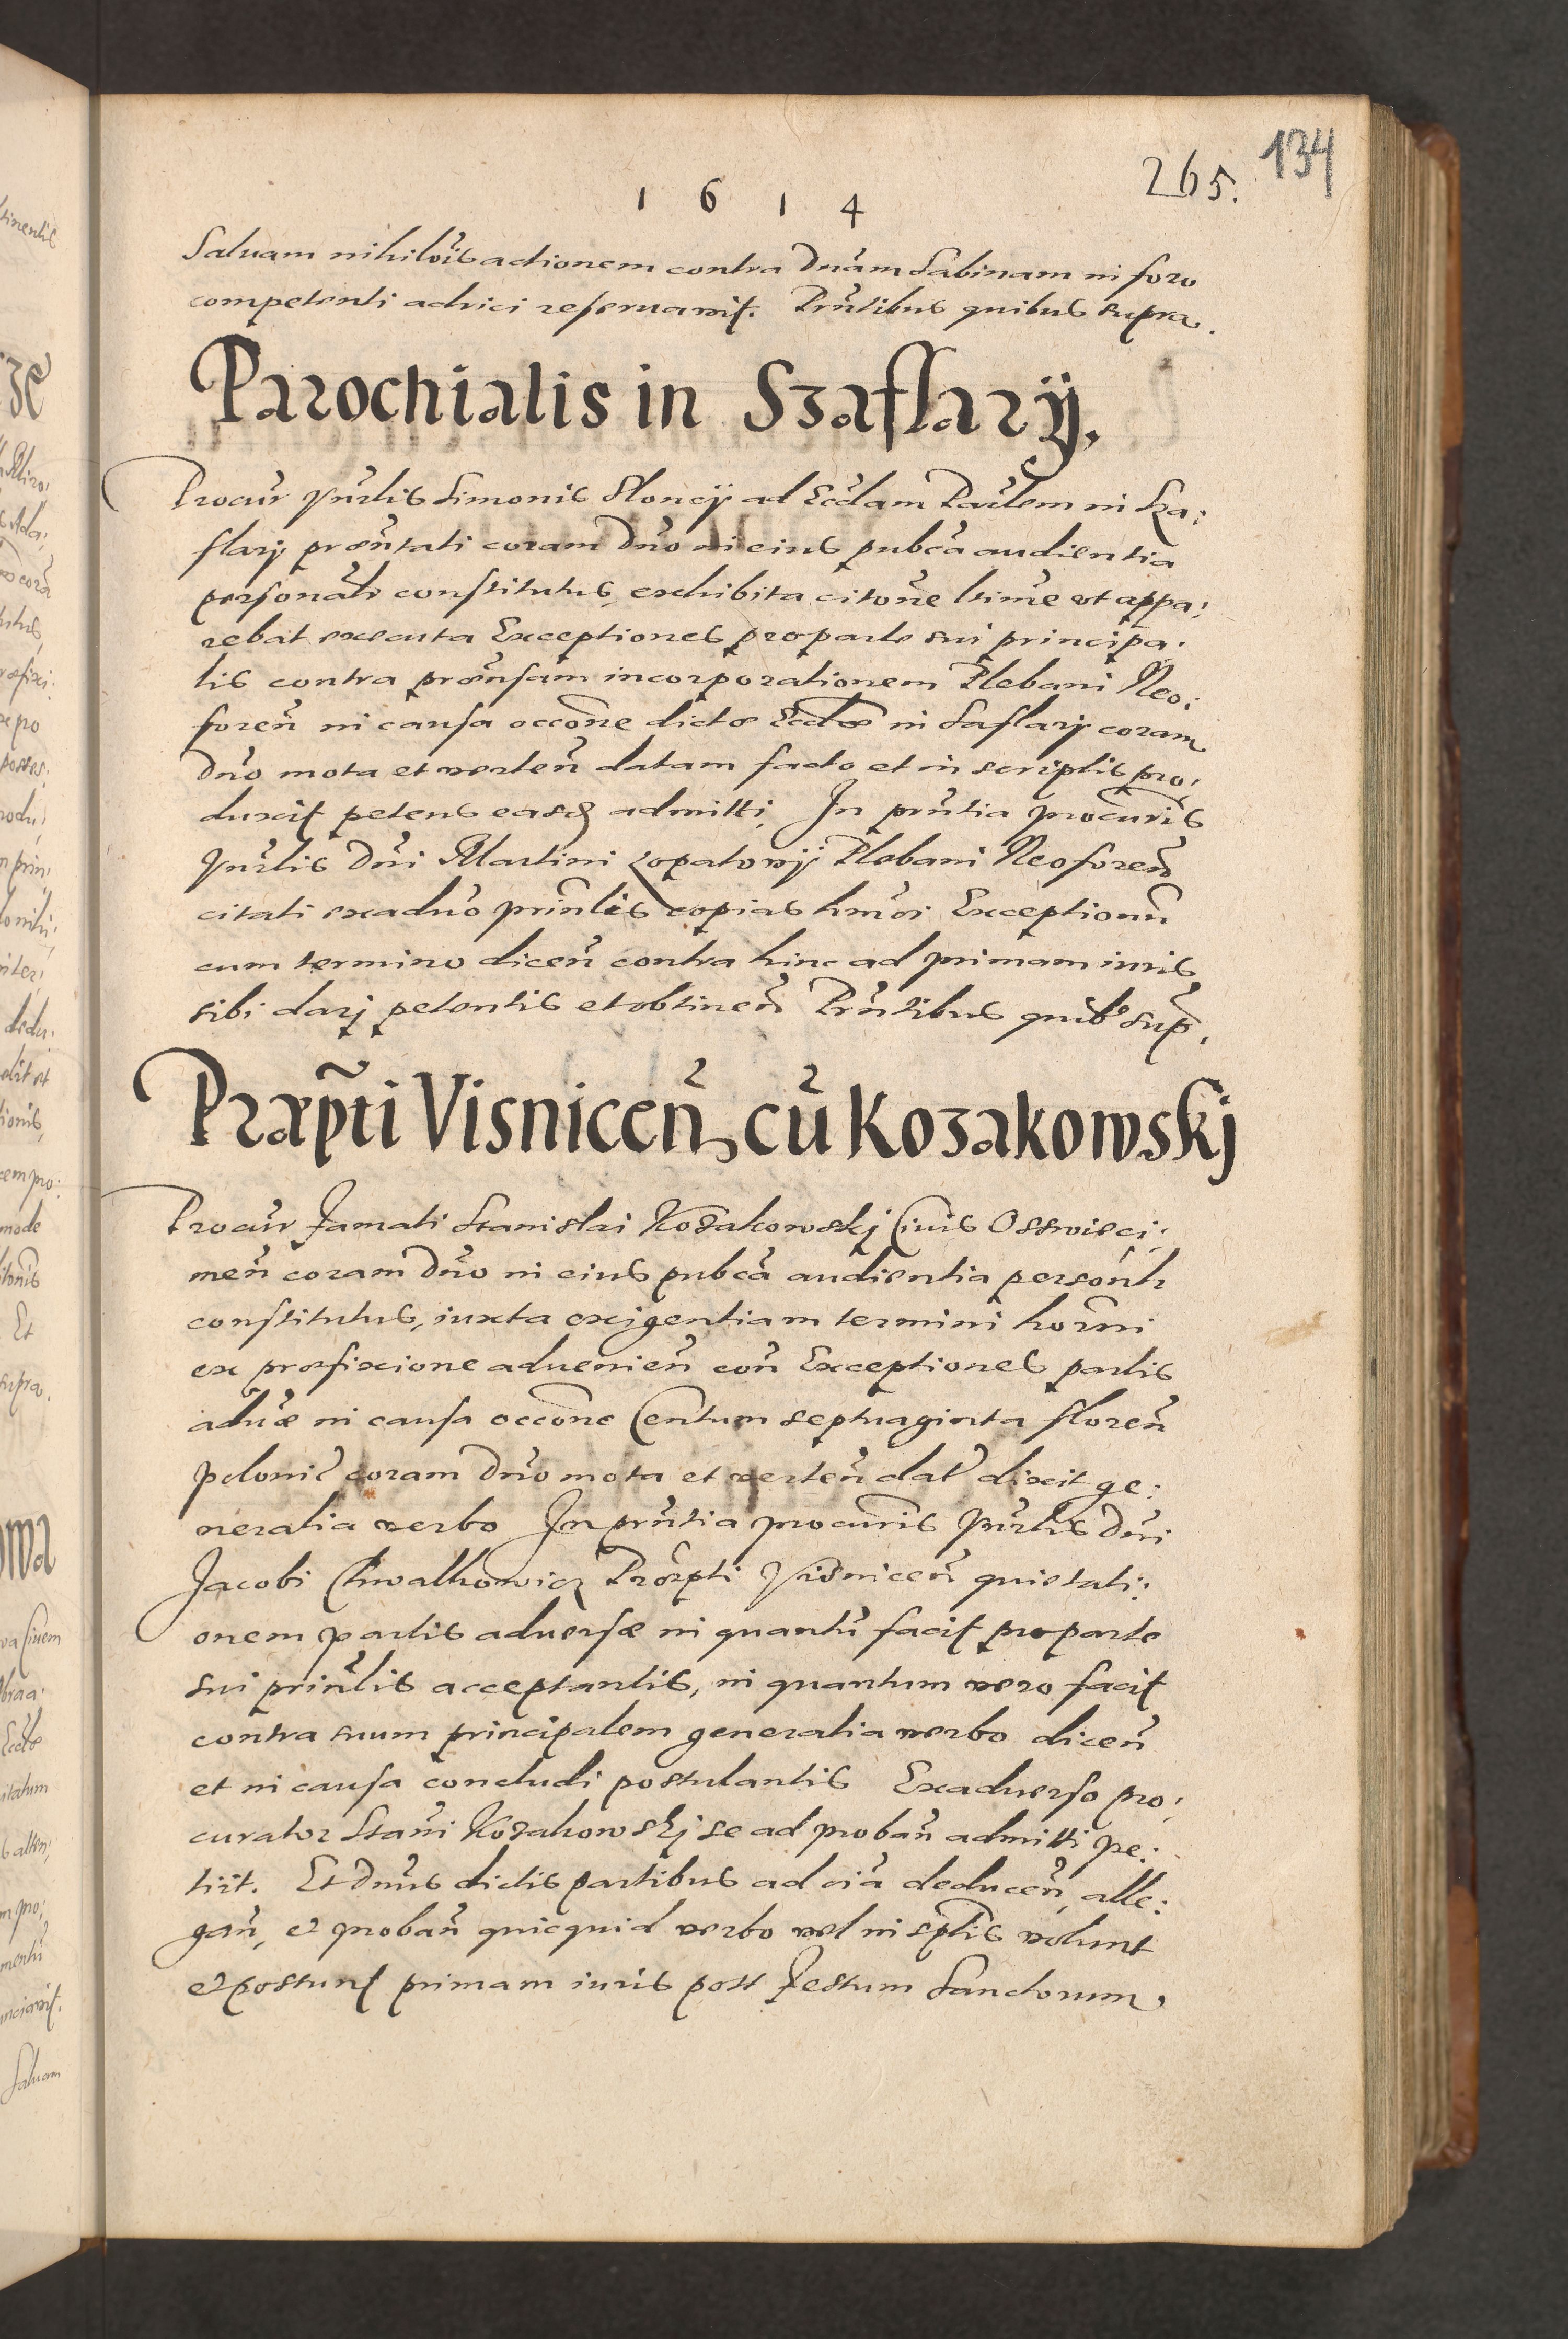 1 6 1 4
265. 134
Saluam nihilo͂is actionem contra Dn͂am Sabinam in foro
competenti advici reseruavit. Prn͂tibus quibus supra.
Parochialis in Szaflarÿ.
Procur͂ Vn͂rlis Simonis Sloncÿ ad Eccl͂am Par͂lem in Sza:
flarÿ præn͂tati coram Dn͂o in eius pub͂ca audientia
personal͂r constitutus, exhibita cito͂ne l͂time vt appa:
rebat executa Exceptiones pro parte sui principa:
lis contra præn͂sam incorporationem Plebani Neo:
foren͂ in causa occo͂ne dictæ Eccl͂æ in Saflarÿ coram
Dn͂o mota et verten͂ datam facto et in scriptis pro:
duxit petens easdẽ admitti. In prn͂tia procur͂is
Vn͂rlis Dn͂i Martini Lopatovÿ Plebani Neoforen͂
citati exaduo͂ prin͂lis copias hm͂oi Exceptionu͂
cum termino dicen͂ contra hinc ad primam iuris
sibi darj petentis et obtinen͂ Prn͂tibus quib9 sup͂.
Præp͂ti Visnicen͂, cu͂ Kozakowskj
Procur͂ Famati Stanislai Kozakowskj Ciuis Osswieci:
men͂ coram Dn͂o in eius pub͂ca audientia person͂lr
constitutus, iuxta exigentiam termini hor͂ni
ex præfixione aduenien͂ con͂ Exceptiones partis
adu͂æ in causa occo͂ne Centum septuaginta floren͂
poloni͂c coram Dn͂o mota et verten͂ dat͂ dixit ge:
neralia verbo In prn͂tia procur͂is Vn͂rlis Dn͂i
Jacobi Chwalkowicz Præp͂ti Visnicen͂ quietati:
onem partis aduersæ in quantu͂ facit pro parte
sui prin͂lis acceptantis, in quantum vero facit
contra suum principalem generalia verbo dicen͂
et in causa concludi postulantis Exaduerso pro:
curator Stan͂i Kozakowskj se ad proban͂ admitti pe:
tiit. Et Dn͂us dictis partibus ad oi͂a deducen͂, alle:
gan͂, et proban͂ quicquid verbo vel in sp͂tis volunt
et possunt primam iuris post Festum Sanctorum,